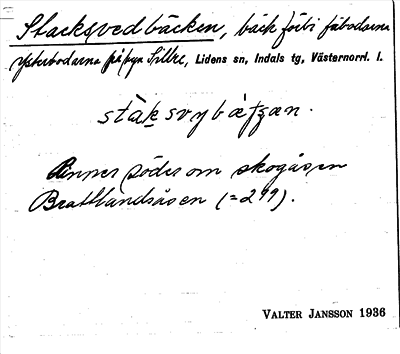 Stacksvedbäcken, bäck förbi fäbodarna
Ysterbodarna på byn Sillre, Lidens sn, Indals tg, Västernorrl. l.
Rinner söder om skogåsen
Brattlandsåsen (=299).
VALTER JANSSON 1936